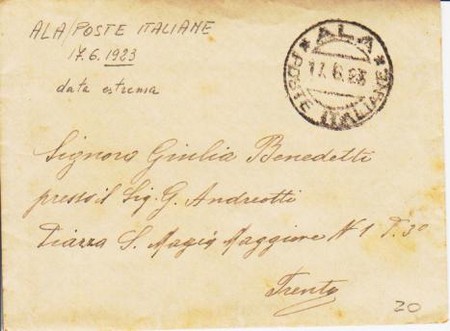 ALA/POSTE ITALIANE
17.6.1923
data estrema
* ALA *
17.6.23
POSTE ITALIANE
Signora Giulia Benedetti
presso il Sig. G. Andreotti
Piazza S. Maggiore N 1 P. 3º
Trento
20